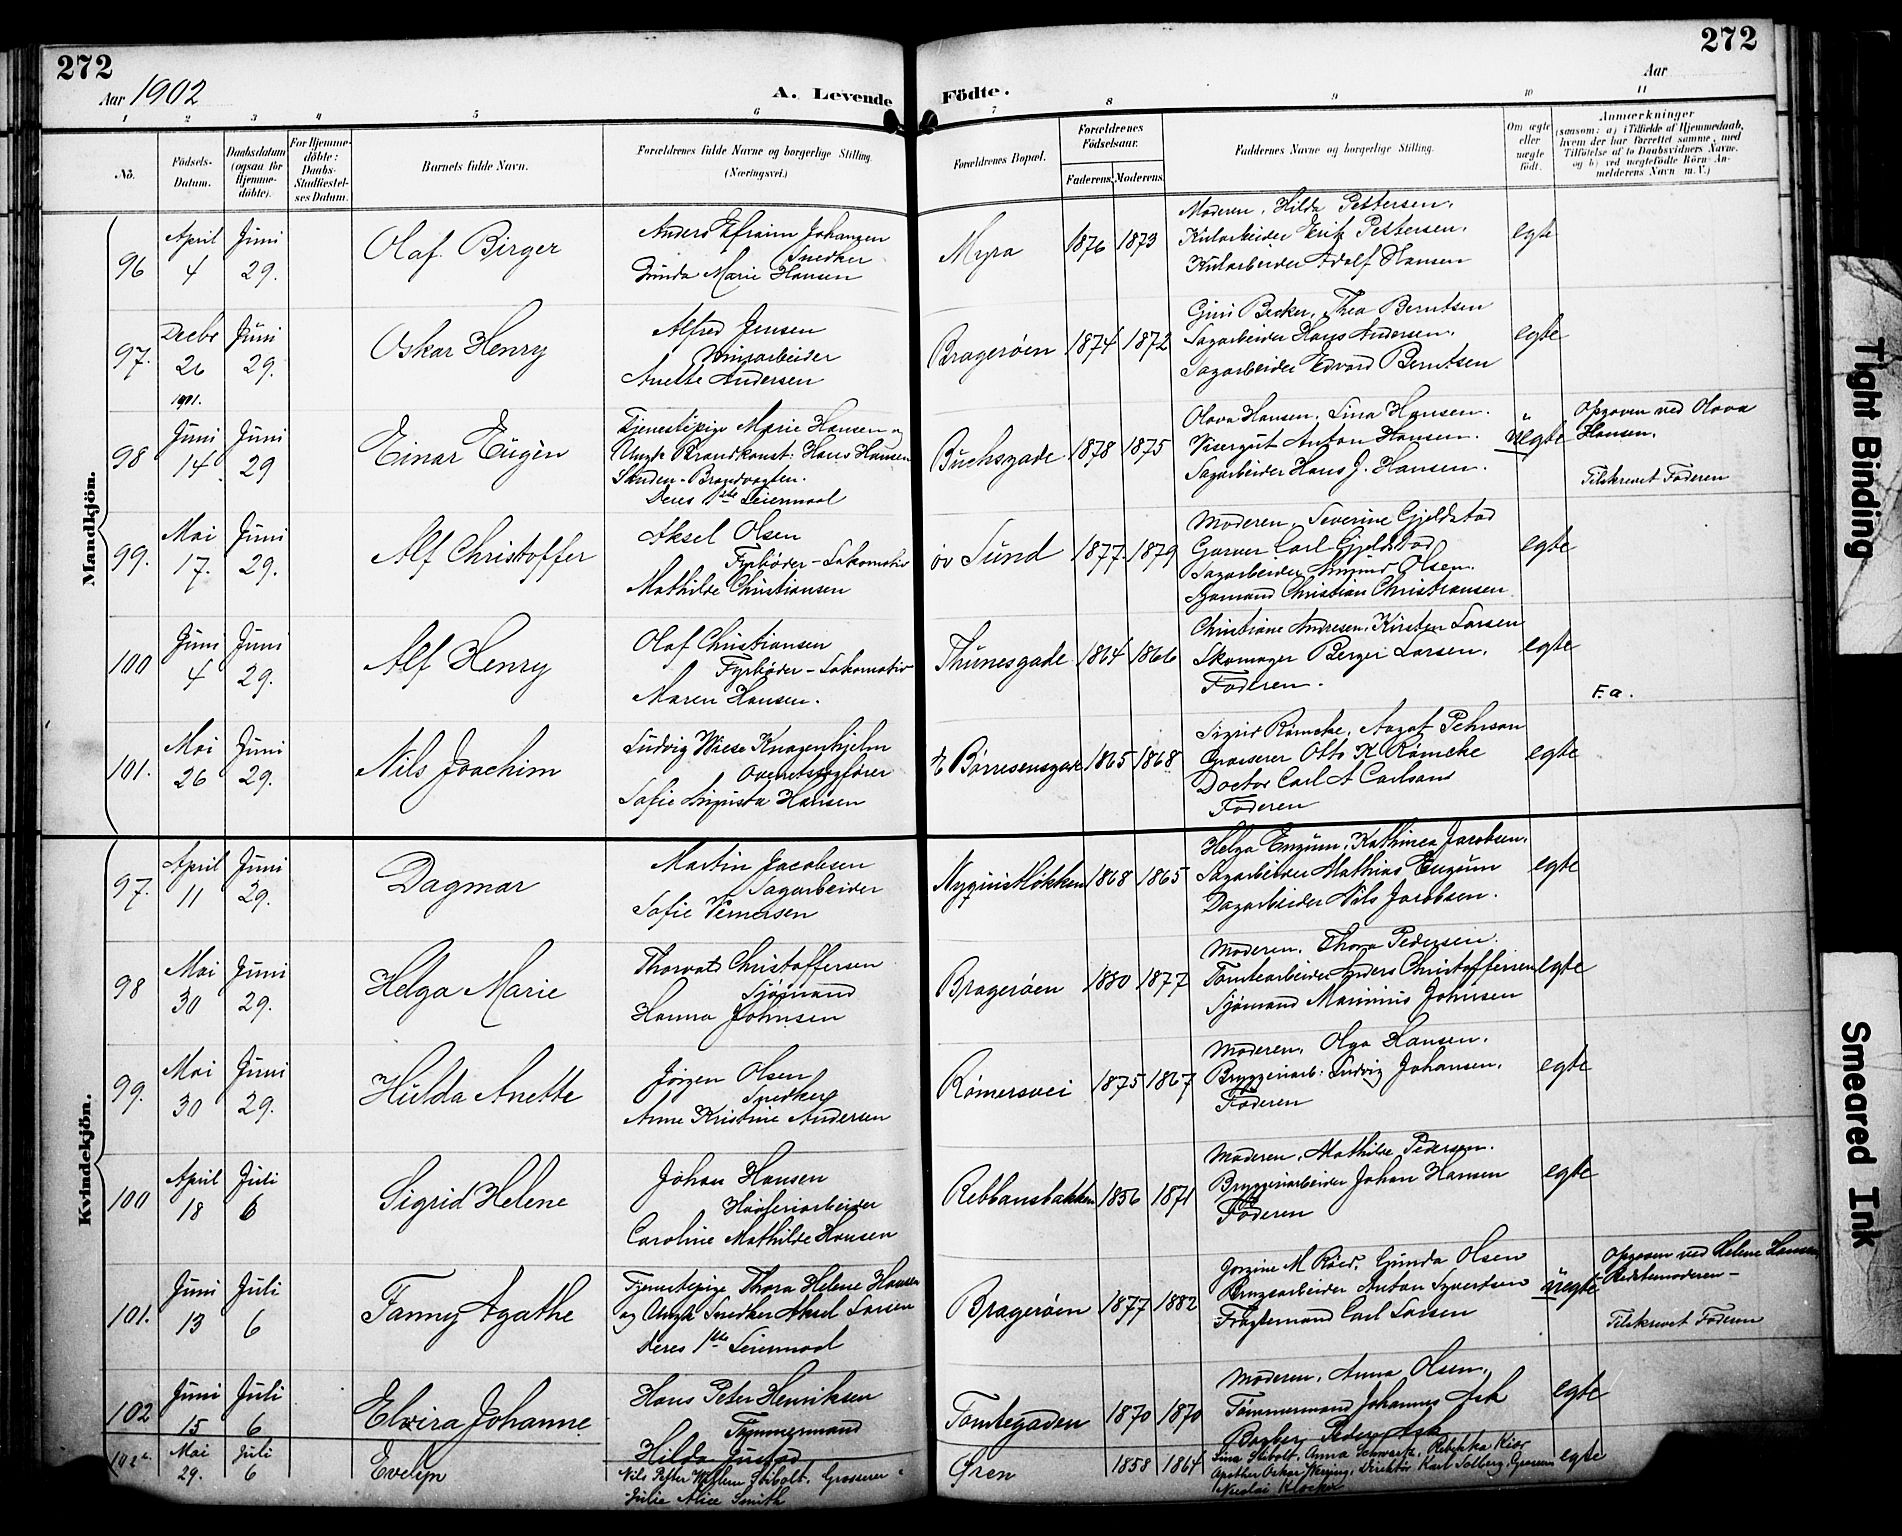 272
272
Aar 1902
A. Levende
Födte.
Aar
1 2 3 4 5 6 7 8 9 10 11
No.
Födsels-Datum.
Daabsdatum (ogsaa för Hjemme-döbte).
For Hjemme-döbte: Daabs-Stadfæstel-ses Datum.
Barnets fulde Navn.
Forældrenes fulde Navne og borgerlige Stilling. (Næringsvei.)
Forældrenes Bopæl.
Forældrenes Födselsaar.
Faderens. Moderens.
Faddernes Navne og borgerlige Stilling.
Om ægte eller uægte födt.
Anmærkninger
(saasom: a) i Tilfælde af Hjemmedaab, hvem der har forrettet samme, med Tilföielse af to Daabsvidners Navne, og b) ved uægtefödte Börn An-melderens Navn m. V.)
Mandkjön.
96 April 4 Juni 29. Olaf Birger
Anders Efraim Johansen
Snedker
Gunda Marie Hansen
Myra 1876 1873
Moderen, Hilda Pettersen,
Kularbeider Erik Pettersen.
Kularbeider Adolf Hansen
egte
97. Decbr 26 1901. Juni 29. Oskar Henry
Alfred Jensen
Anette Andersen
Bragerøen 1874 1872
Becker, Thea Berntsen
Sagarbeider Hans Andersen.
Sagarbeider Edvard Berntsen
egte
98 Juni 14 Juni 29 Einar Eugèn
Tjenestepige Marie Hansen og
Ungk. Brandkonst: Hans Hansen
Sanden - Brandvagten.
Deres 1ste Leiermaal
Buchsgade 1878 1875
Olava Hansen, Lina Hansen.
Visergut Anton Hansen.
Sagarbeider Hans J. Hansen.
uegte
Opgaven ved Olava Hansen.
Tilskrevet Faderen
99. Mai 17. Juni 29. Alf Christoffer
Aksel Olsen
Fyrbøder - Lokomotiv
Mathilde Christiansen
öv Sund 1877. 1879
Moderen, Severine Gjeldstad
Garver Carl Gjeldstad
Sagarbeider Olsen.
Sjømand Christian Christiansen
egte
100 Juni 4 Juni 29. Alf Henry
Olaf Christiansen
Fyrbøder - Lokomotiv
Maren Hansen.
Thunesgade 1864 1866
Christiane Andresen, Kirsten Larsen
Skomager Berger Larsen.
Faderen.
egte
F.a.
101. Mai 26 Juni 29. Nils Joachim
Ludvig Wiese Knagenhjelm
Overetssagfører
Sofie Augusta Hansen
Børresensgade 1865 1868
Sigrid Rømcke, Aagot Pehrson
Grosserer Otto K Rømcke
Doctor Carl A Carlsons
Faderen
egte
Kvindekjön.
97. April 11 Juni 29. Dagmar
Martin Jacobsen
Sagarbeider
Sofie Vernersen
1868 1865
Helga Engum, Kathinca Jacobsen.
Sagarbeider Mathias Engum
Dagarbeider Nils Jacobsen.
egte
98 Mai 30 Juni 29. Helga Marie
Thorvald Christoffersen
Sjømand
Hanna Johnsen
Bragerøen 1880 1877
Moderen, Thora Pedersen.
Tomtearbeider Anders Christoffersen
Sjømand Marinius Johnsen
egte
99. Mai 30 Juni 29. Hulda Anette
Jörgen Olsen
Snedker
Anne Kristine Andersen
Rømersvei 1875 1867
Moderen, Olga Hansen.
Bryggeriarb: Ludvig Johansen.
Faderen
egte
100 April 18 Juli 6 Sigrid Helene
Johan Hansen
Caroline Mathilde Hansen
Rebbansbakken 1856 1871
Moderen, Mathilde Pedersen.
Bryggeriarbeider Johan Hansen
Faderen
egte
101. Juni 13 Juli 6 Fanny Agathe
Tjenestepige Thora Helene Hansen
og Ungk Snedker Aksel Larsen
Deres 1ste Leiermaal
Bragerøen 1877 1882
Gunda Olsen
Brugsarbeider Anton Syvertsen
Fragtemand Carl Larsen
uegte
Opgaven ved Helene Hansen
Tilskrevet Faderen
102 Juni 15 Juli 6 Elvira Johanne
Hans Peter Henriksen
Tømmermand
Hilda Justad
Tomtegaden 1870 1870
Moderen, Anna Olsen,
Tømmermand Johannes Ask
Bagber Peder Ask
egte
102a. Mai 29. Juli 6 Evelyn
Nils Petter Vilhelm Stibolt. Grosserer
Julie Alice Smith
Øren 1858 1864
Lina Stibolt, Anna Schwartz, Rebekka Kiør
Apother Oskar, Direktør Karl Solberg,
Nicolai Klocker
egte
Tight Binding
Smeared Ink